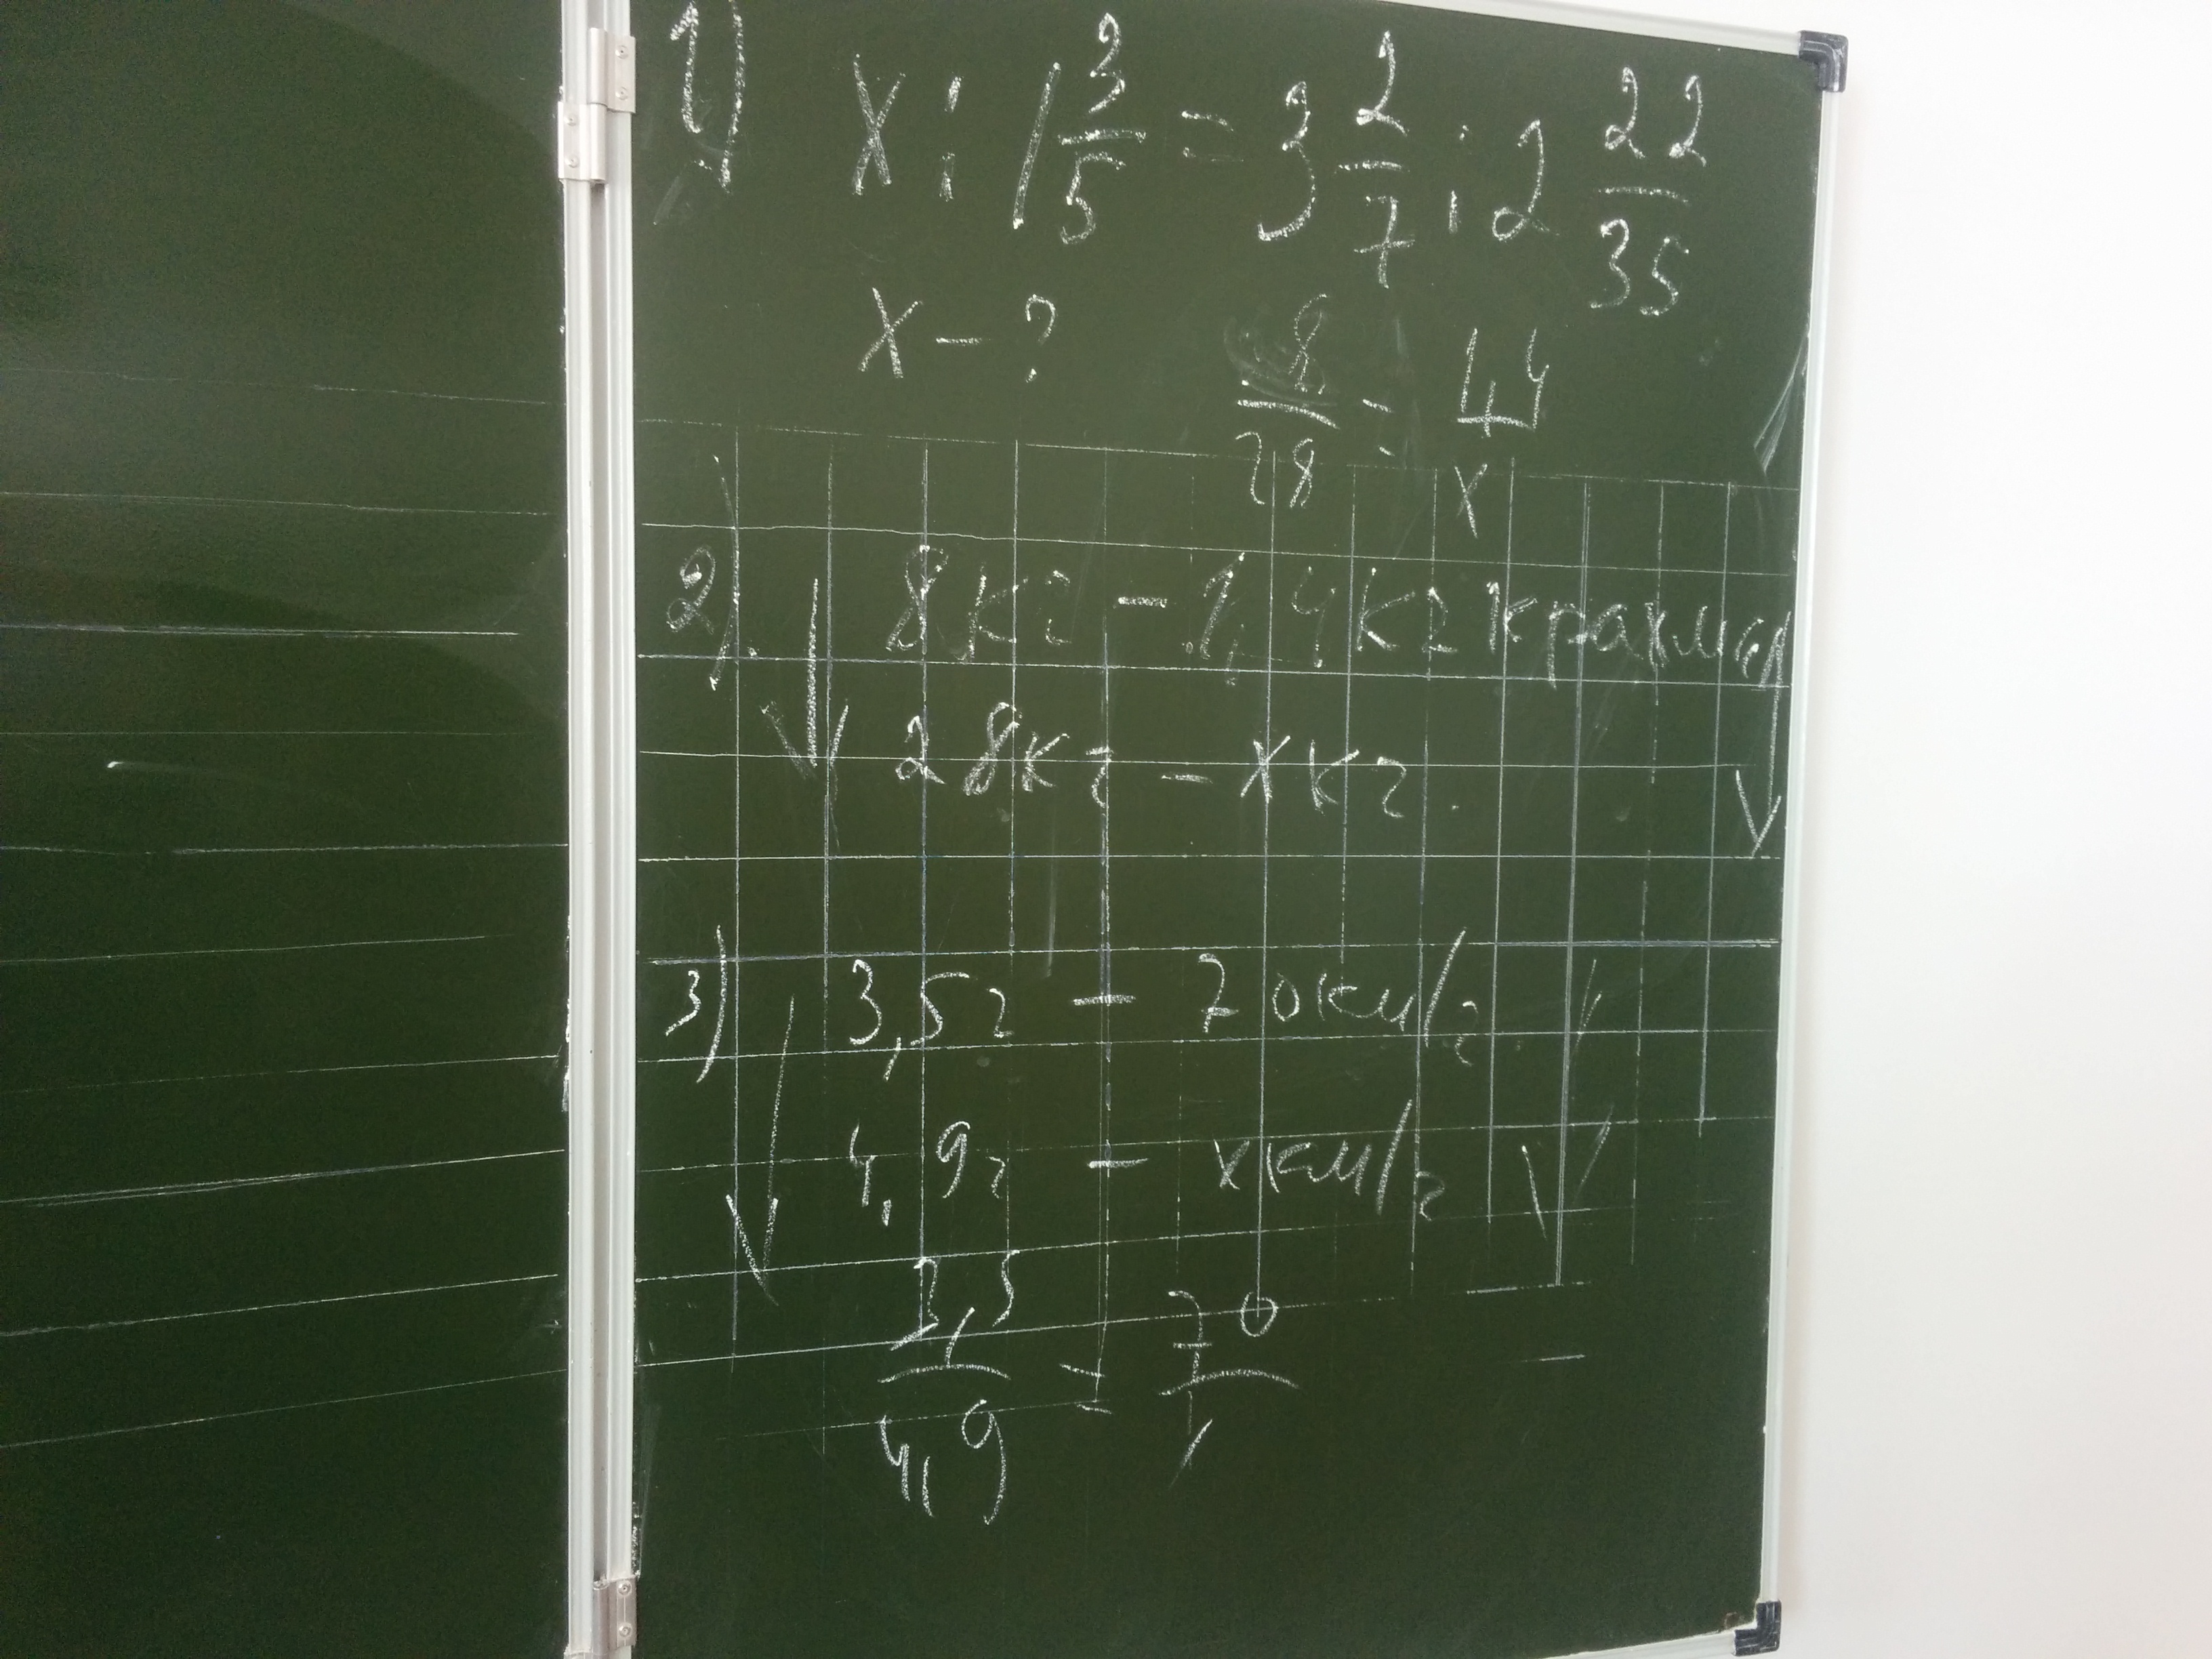 1) x : 1 3/5 = 3 2/7 : 2 22/35
x - ?
8/28 = 1,4/x
2). 8кг - 1,4кг крахмал
28кг - xкг.
3) 3,5г - 70км/г
4,9г - xкм/г
3,5/4,9 = 70/x